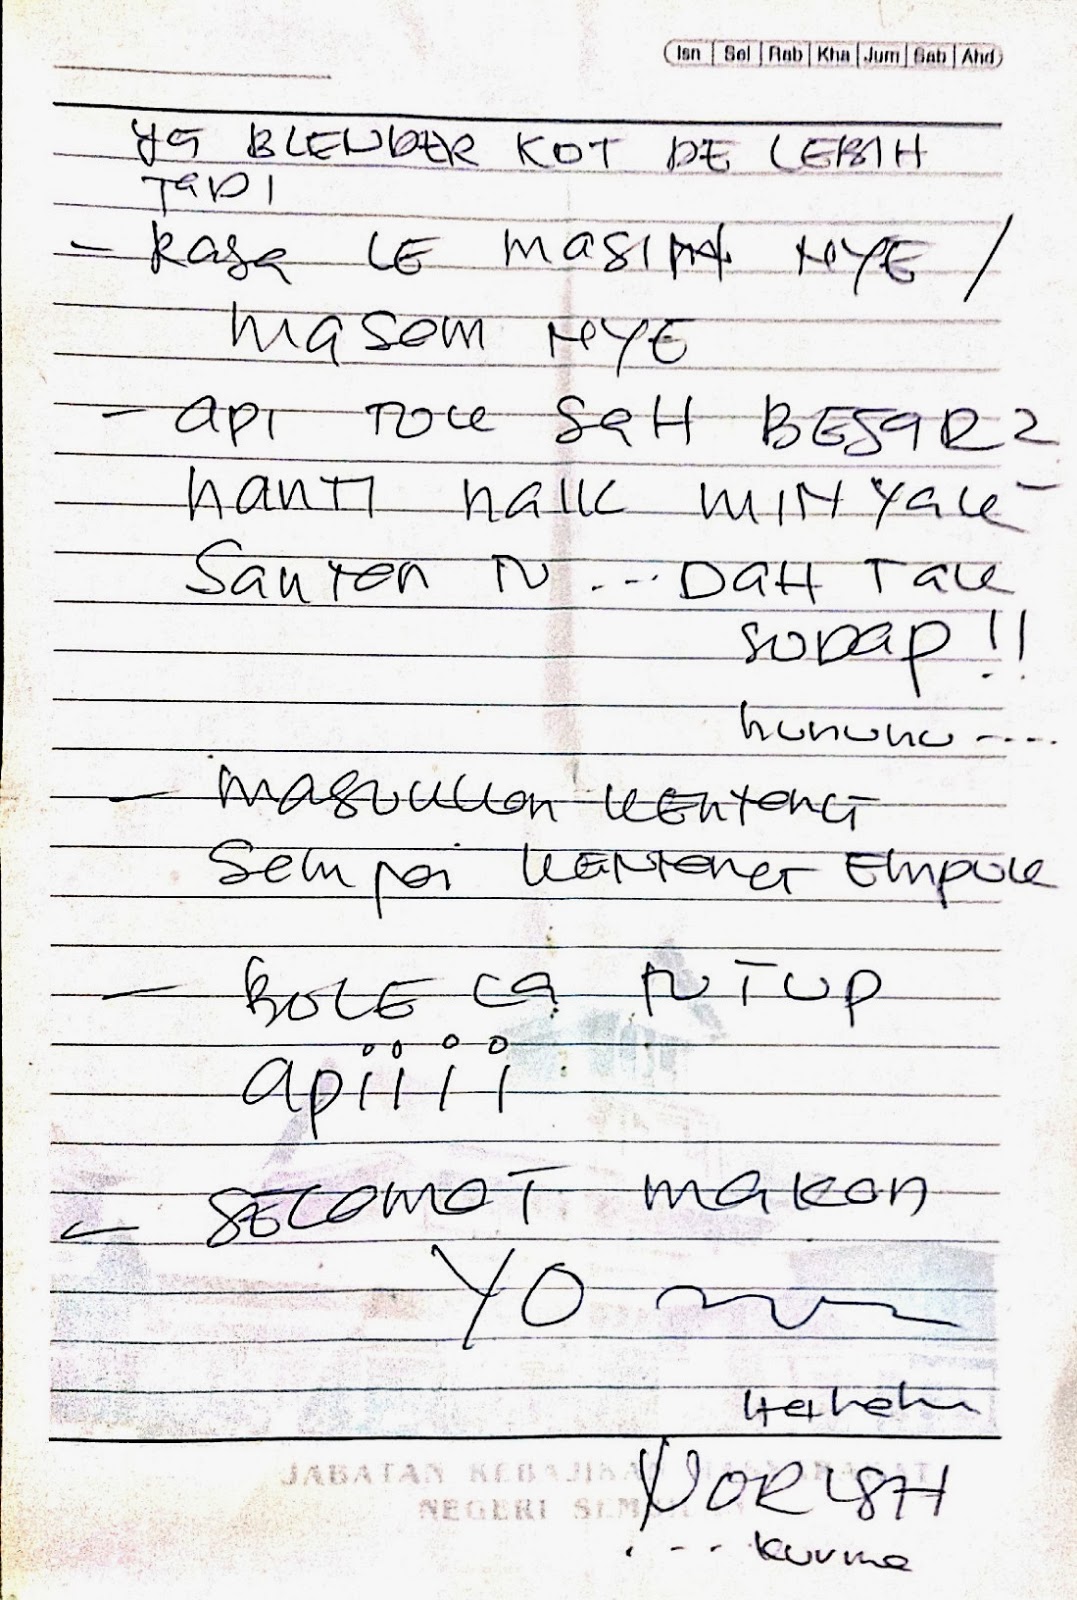 Isn Sel Rab Kha Jum Sab Ahd
YG BLENDER KOT DE LEBIH
TaDI
- Rasa LE masIN NYE /
masem NYE
- api TOK SaH BESAR2
hanTI naIK mINYak -
Santen TU ... DaH Tak
SODap !!
hununu ....
- masukkan KENTENG
Sempai KENTENG Empuk
- BOLE La TUTUP
apiiii
- SELAMAT makan
YO
Hehehe
NORISH
... kurma
JABATAN KEBAJIKAN MASYARAKAT
NEGERI SEM